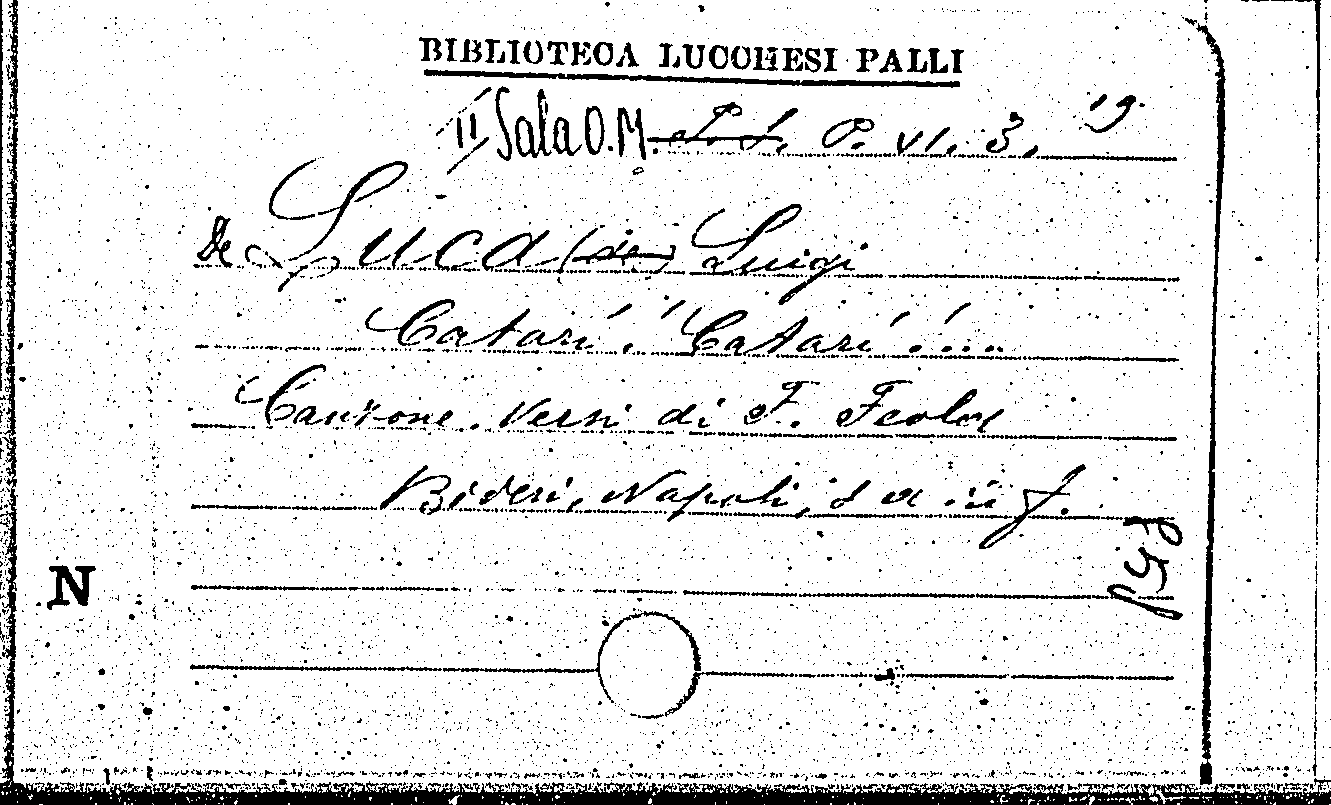 BIBLIOTECA LUCCHESI PALLI
II Sala O.M. P. VI. 3. 19.
De Luca (de) Luigi
Catarí! Catarí!...
Canzone. Versi di F. Feola
Bideri, Napoli, s a in f.
N